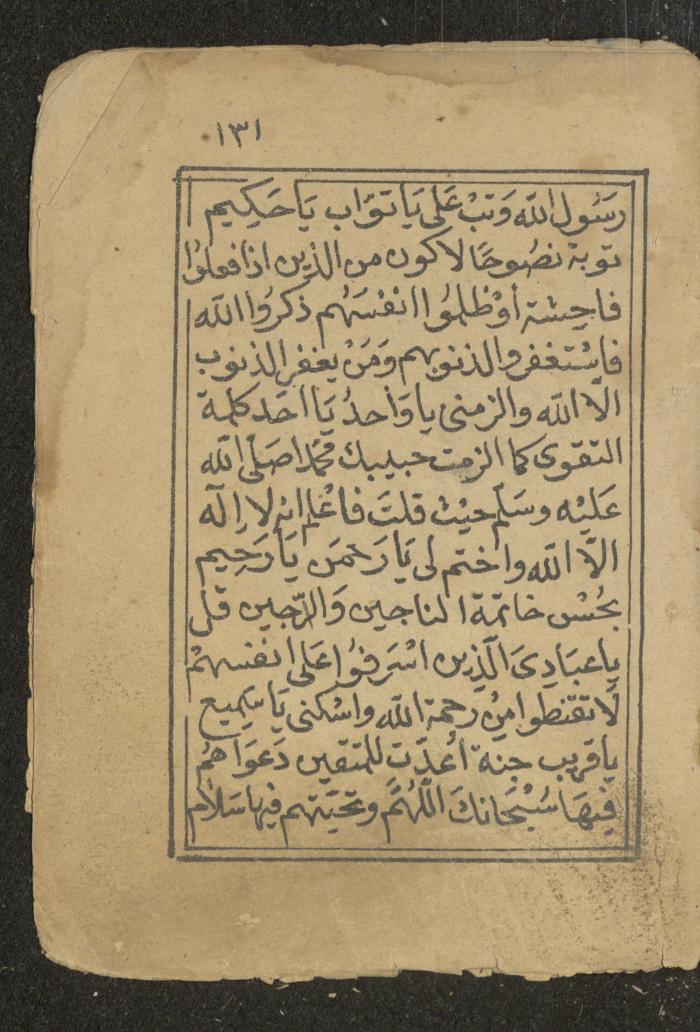 ١٣١
رَسُول الله وَتبْ عَلى يَا تَوَّاب يَا حَكِيم
توبة نصُوحًا لاكون من الذين اذا فعلوُا
فاحِشة أوْظلموُا انفسَهُم ذكرُوا الله
فاسْتغفروالذنوبهم وَمَنْ يغفر الذنوب
الّا الله والزمنى يا وَاحدُ يَا احَد كلمة
التقوى كما الزمت حبيبك محمّدا صَلّى الله
عَليْه وسَلّم حيْث قلتَ فاعْلم انه لا اِلَه
الاّ الله واختم لى يَا رَحمَن يَا رَحِيم
بحُسْن خاتمة الناجين وَالرّاجين قل
ياعبَادِىَ الّذِين اسْرَفوُا عَلى انفسهمْ
لَا تقنطوا مِنْ رحمة الله واسْكنى يَا سَمِيع
يا قريب جنة اُعدّت للمتقين دَعوَاهُم
فيهَا سُبْحَانكَ اللّهُمّ وتحيّتهم فيها سَلام